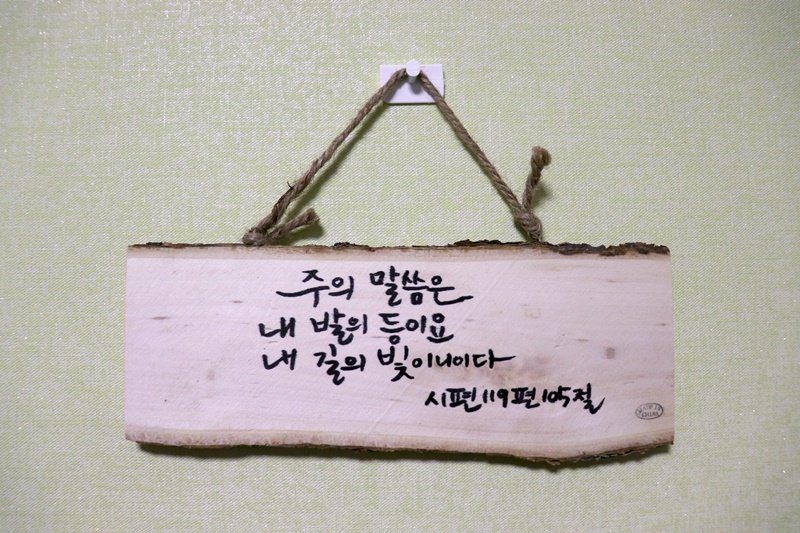 주의 말씀은
내 발의 등이요
내 길의 빛이니이다
시편 119편 105절